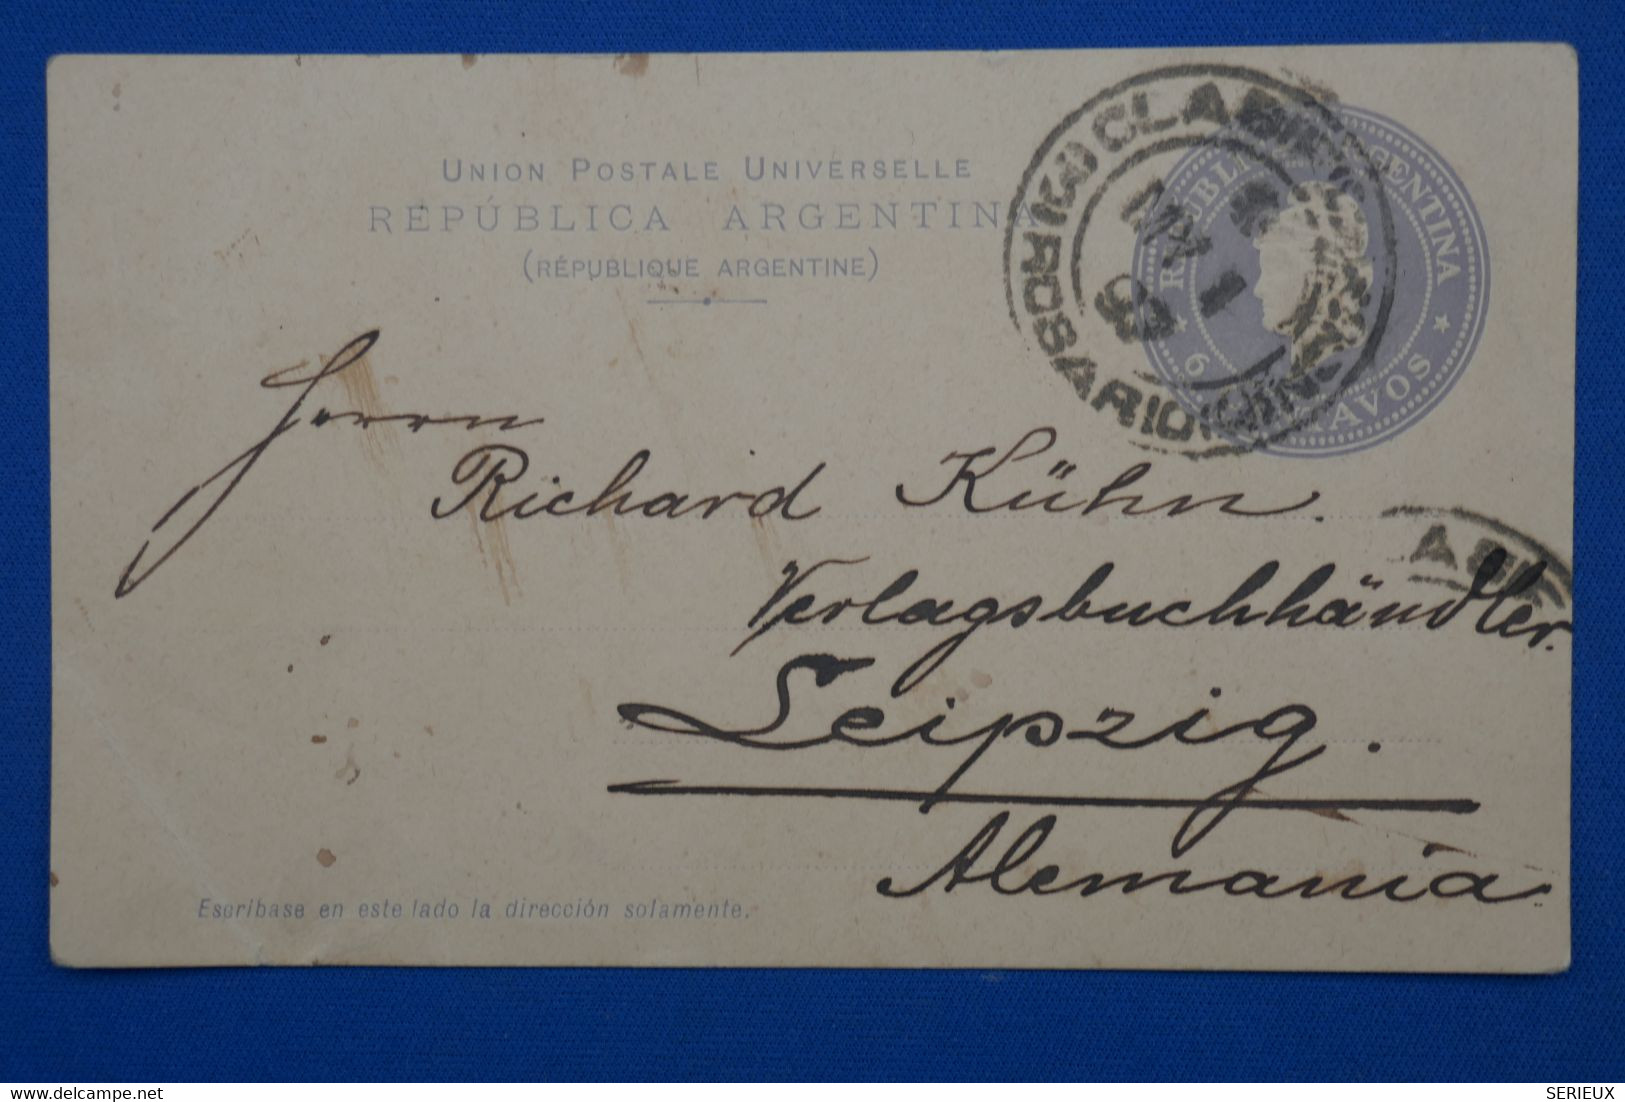 UNION POSTALE UNIVERSELLE
REPÚBLICA ARGENTINA
(RÉPUBLIQUE ARGENTINE)
REPUBLICA ARGENTINA
6
ROSARIO
MY 1
93
Herrn
Richard Kühn.
Verlagsbuchhändler.
Leipzig.
Alemania
Escríbase en este lado la dirección solamente.
SERIEUX